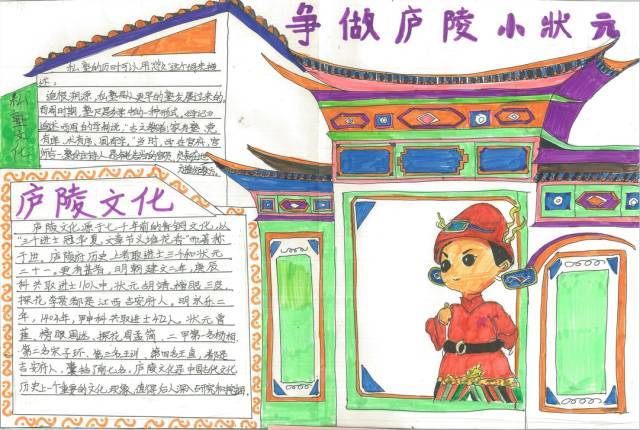 争做庐陵小状元
私塾文化
私塾的历时可以用悠久这个词来描
述。
追根溯源,私塾是从更早的塾发展过来的,
西周时期,塾只是乡学中的一种形式。《学记》
追述西周的学制说:“古之教者,家有塾,党
有庠,术有序,国有学。”当时,
庐陵文化
庐陵文化源于七千年前的青铜文化,以
“三个进士冠华夏,文章节义堆花香”而著称
于世。庐陵府历史上考取进士三千和状元
二十一。更有甚者,明朝建文二年,庚辰
科共取进士110人中,状元胡靖、榜眼王艮、
探花李贯都是江西吉安府人。明永乐二
年,1404年,甲申科共取进士472人。状元曾
棨、榜眼周述、探花周孟简、二甲第一名杨相、
第二名宋子环、第三名王训、第四名王直,都是
吉安府人,囊括了前七名。庐陵文化是中国古代文化
历史上一个重要的文化现象,值得后人深入研究和挖掘。